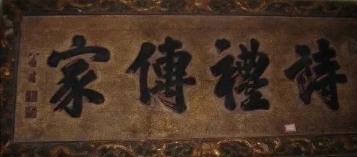 詩禮傳家